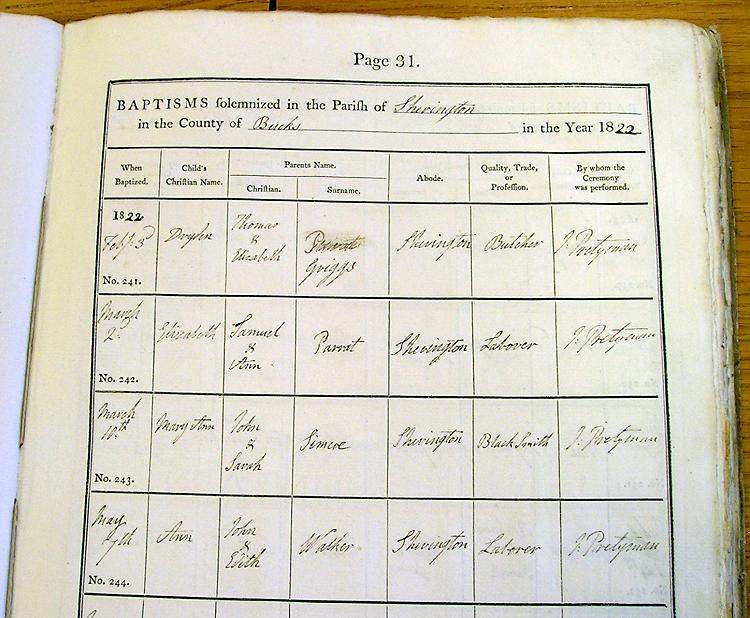 Page 31.
BAPTISMS solemnized in the Parish of Sherington
in the County of Bucks in the Year 1822
When Baptized. Child's Christian Name. Parents Name. Abode. Quality, Trade, or Profession. By whom the Ceremony was performed.
Christian. Surname.
1822
Feby. 3d Dryden Thomas & Elizabeth Parrat Griggs Sherington Butcher J. Pretyman
No. 241.
March 2d Elizabeth Samuel & Ann Parrat Sherington Labover J. Pretyman
No. 242.
March 10th Mary Ann John & Sarah Simcoe Sherington Black Smith J. Pretyman
No. 243.
May 7th Ann John & Edith Walker Sherington Labover J. Pretyman
No. 244.